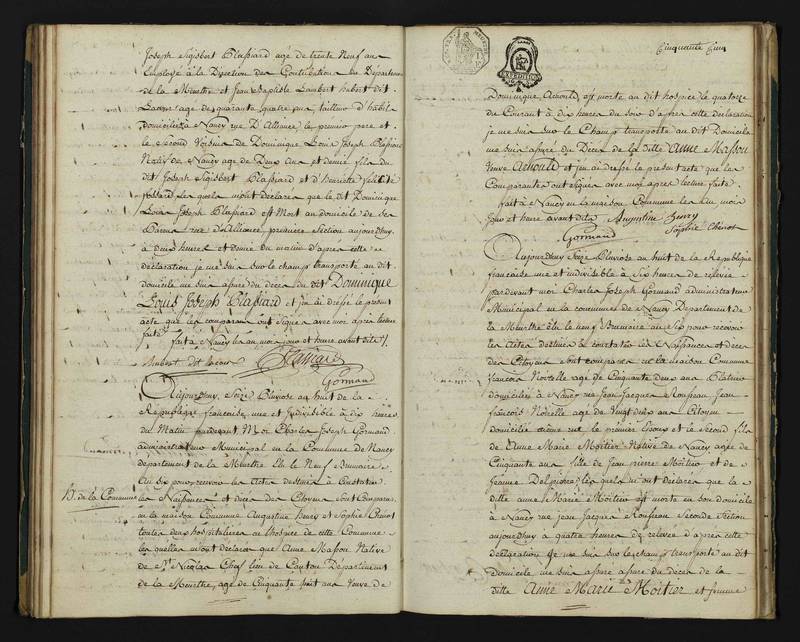 Joseph Sigisbert Plassiard agé de trente Neuf ans
Employé à la Direction des Contributions du Departemt
de la Meurthe et Jean Baptiste Lambert hubert dit
agé de quarante quatre ans tailleur d'habits
domiciliés à Nancy rue D'Alliance le premier pere et
le second Voisin de Dominique Louis Joseph Plassiard
Natif de Nancy agé de Deux ans et demi fils du
dit Joseph Sigisbert Plassiard et d'henriette felicité
les quels m'ont declarés que le dit Dominique
Louis Joseph Plassiard est Mort au domicile de ses
rue d'Alliance, premiere section aujourdhuy,
à deux heures et demie du matin d'après cette
declaration je me suis sur le champ transporté au dit
domicile me suis assuré du décès du dit Dominique
Louis Joseph Plassiard et j'en ai dressé le present
acte que les comparans ont Signés avec moi après lecture
faite
fait à Nancy les an mois jour et heure avant dits
hubert dit Plassiard
Gormand
Aujourdhuy Seize Pluviose an huit de la
Republique francoise, une et Indivisible à dix heures
du Matin pardevant Moi Charles Joseph Gormand
administrateur Municipal en la Commune de Nancy
departement de la Meurthe Elu le Neuf Brumaire
An Six pour recevoir les Actes destinés à Constater
les Naissances et deces des Citoyens Sont Comparus
H. de la Commune
en la maison Commune Augustine Henry et Sophie Chénot
toutes deux hospitalieres en l'hospice de cette Commune
les quelles m'ont declarés que Anne Masson Native
de St Nicolas Chef lieu de Canton Departement
de la Meurthe, agée de Cinquante huit ans Veuve de
Cinquante Cinq
EXPEDITION
Dominique Arnould, est morte au dit hospice le quatorze
du Courant à dix heures du soir d'après cette declaration
je me suis sur le Champ transporté au dit Domicile
me suis assuré du Décès de la ditte Anne Masson
Veuve Arnould et j'en ai dressé le present acte que les
Comparantes ont Signés avec moi apres lecture faite
fait à Nancy en la maison Commune les an mois
jour et heure avant dits Augustine henry
Gormand Sophie Chénot
Aujourdhuy Seize Pluviose an huit de la Republique
francaise une et indivisible à Six heures de relevée
pardevant moi Charles Joseph Gormand administrateur
Municipal en la commune de Nancy Departement de
la Meurthe Elu le neuf Brumaire an Six pour recevoir
les Actes destinés à constater les Naissances et deces
des Citoyens sont comparus en la maison Commune
francois Noirelle agé de Cinquante deux ans Platrier
domicilié à Nancy rue Jean Jacques Rousseau Jean
françois Noirelle agé de Vingt deux ans Citoyen
domicilié même rue le premier Epoux et le Second fils
de Anne Marie Moitier Native de Nancy agée de
Cinquante ans fille de Jean pierre Moitier et de
Jeanne Delpierre, les quels m'ont declarés que la
ditte anne Marie Moitier est morte en son domicile
à Nancy rue jean Jacques Rousseau Seconde Section
aujourdhuy à quatre heures de relevée d'apres cette
declaration je me suis sur le champ transporté au dit
domicile me suis assuré du décès de la
ditte Anne Marie Moitier et femme